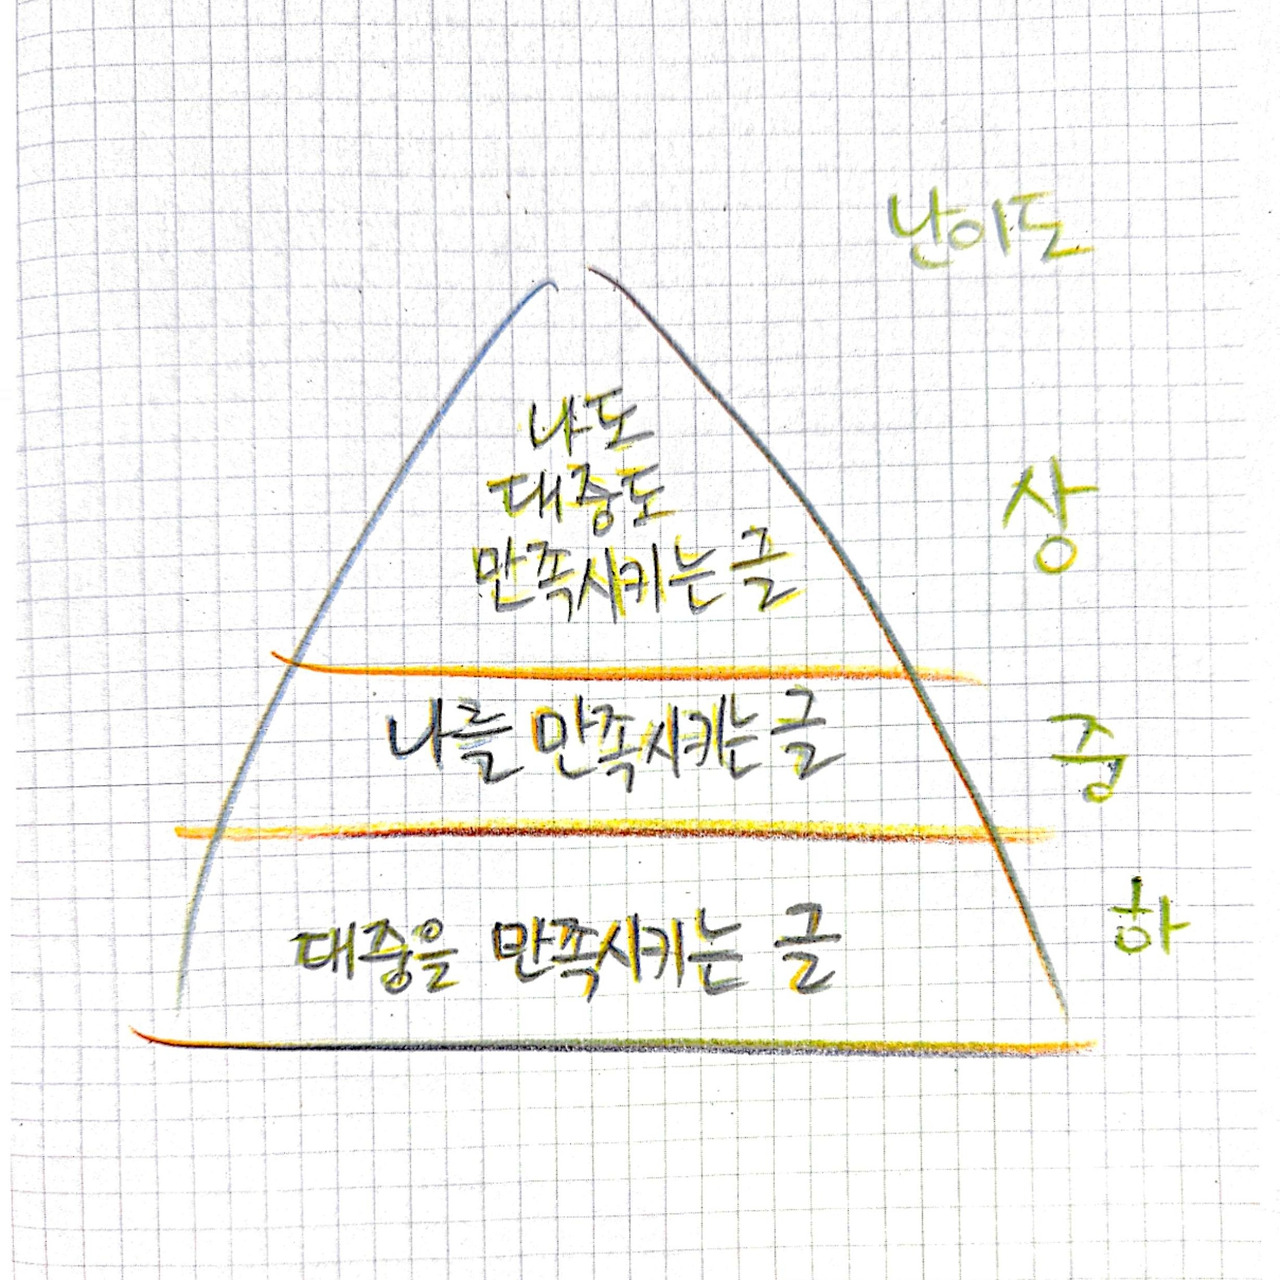 난이도
나도
대중도
만족시키는 글
상
나를 만족시키는 글
중
대중을 만족시키는 글
하